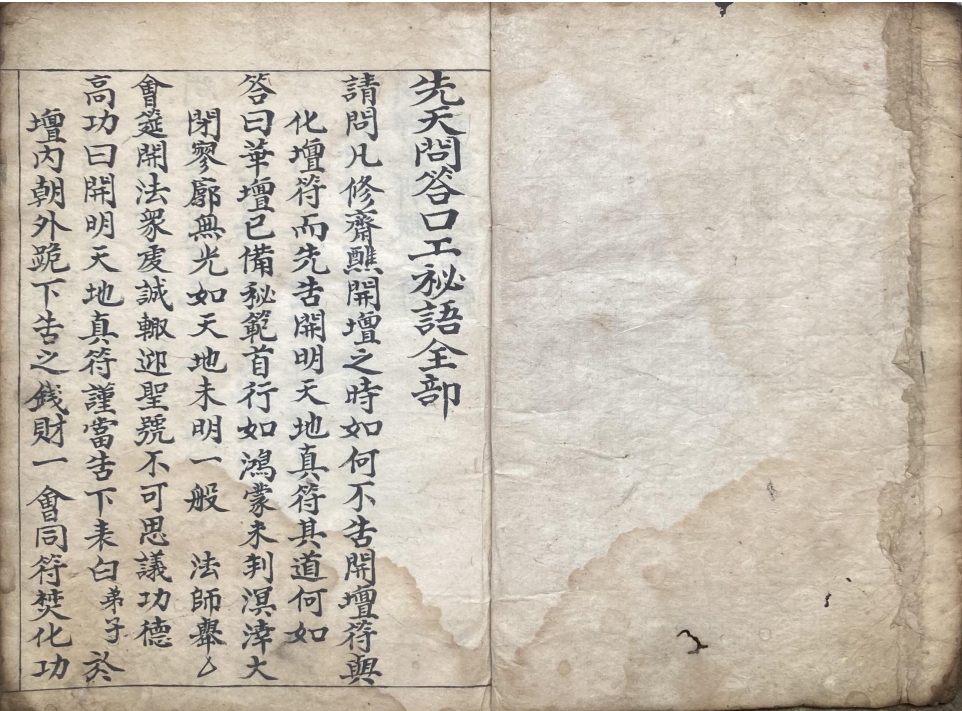 先天問答口工秘語全部
請問凡修齋醮開壇之時如何不告開壇符與
化壇符而先告開明天地真符其道何如
答曰華壇已備秘範首行如鴻蒙未判溟涬大
閉寥廓無光如天地未明一般 法師舉
會筵開法眾虔誠輙迎聖號不可思議功德
高功曰開明天地真符謹當告下表白弟子於
壇內朝外跪下告之錢財一會同符焚化功